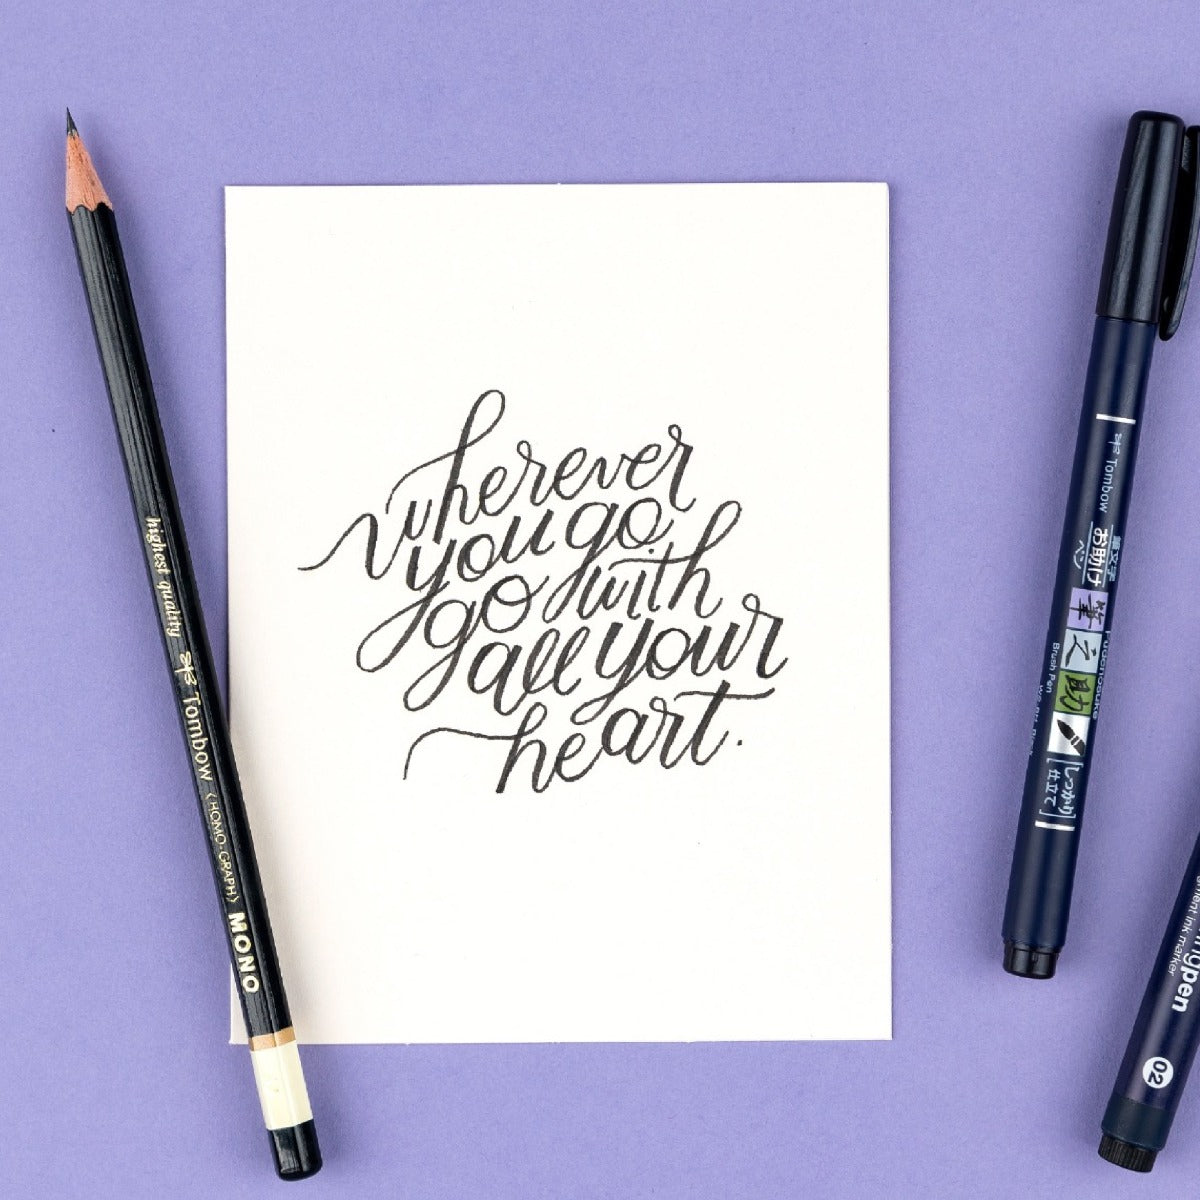 wherever
you go.
go with
all your
heart.
highest quality Tombow <HOMO-GRAPH> MONO
Tombow
筆文字
お助け
ペン
筆之助
Fudenosuke
Brush Pen
[しっかり
仕立て]
ink marker
pen
02